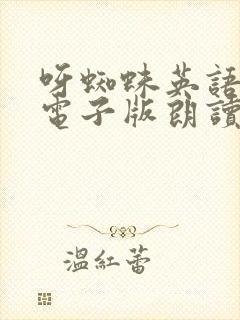 呀蜘蛛英語
電子版朗讀
溫紅蕾